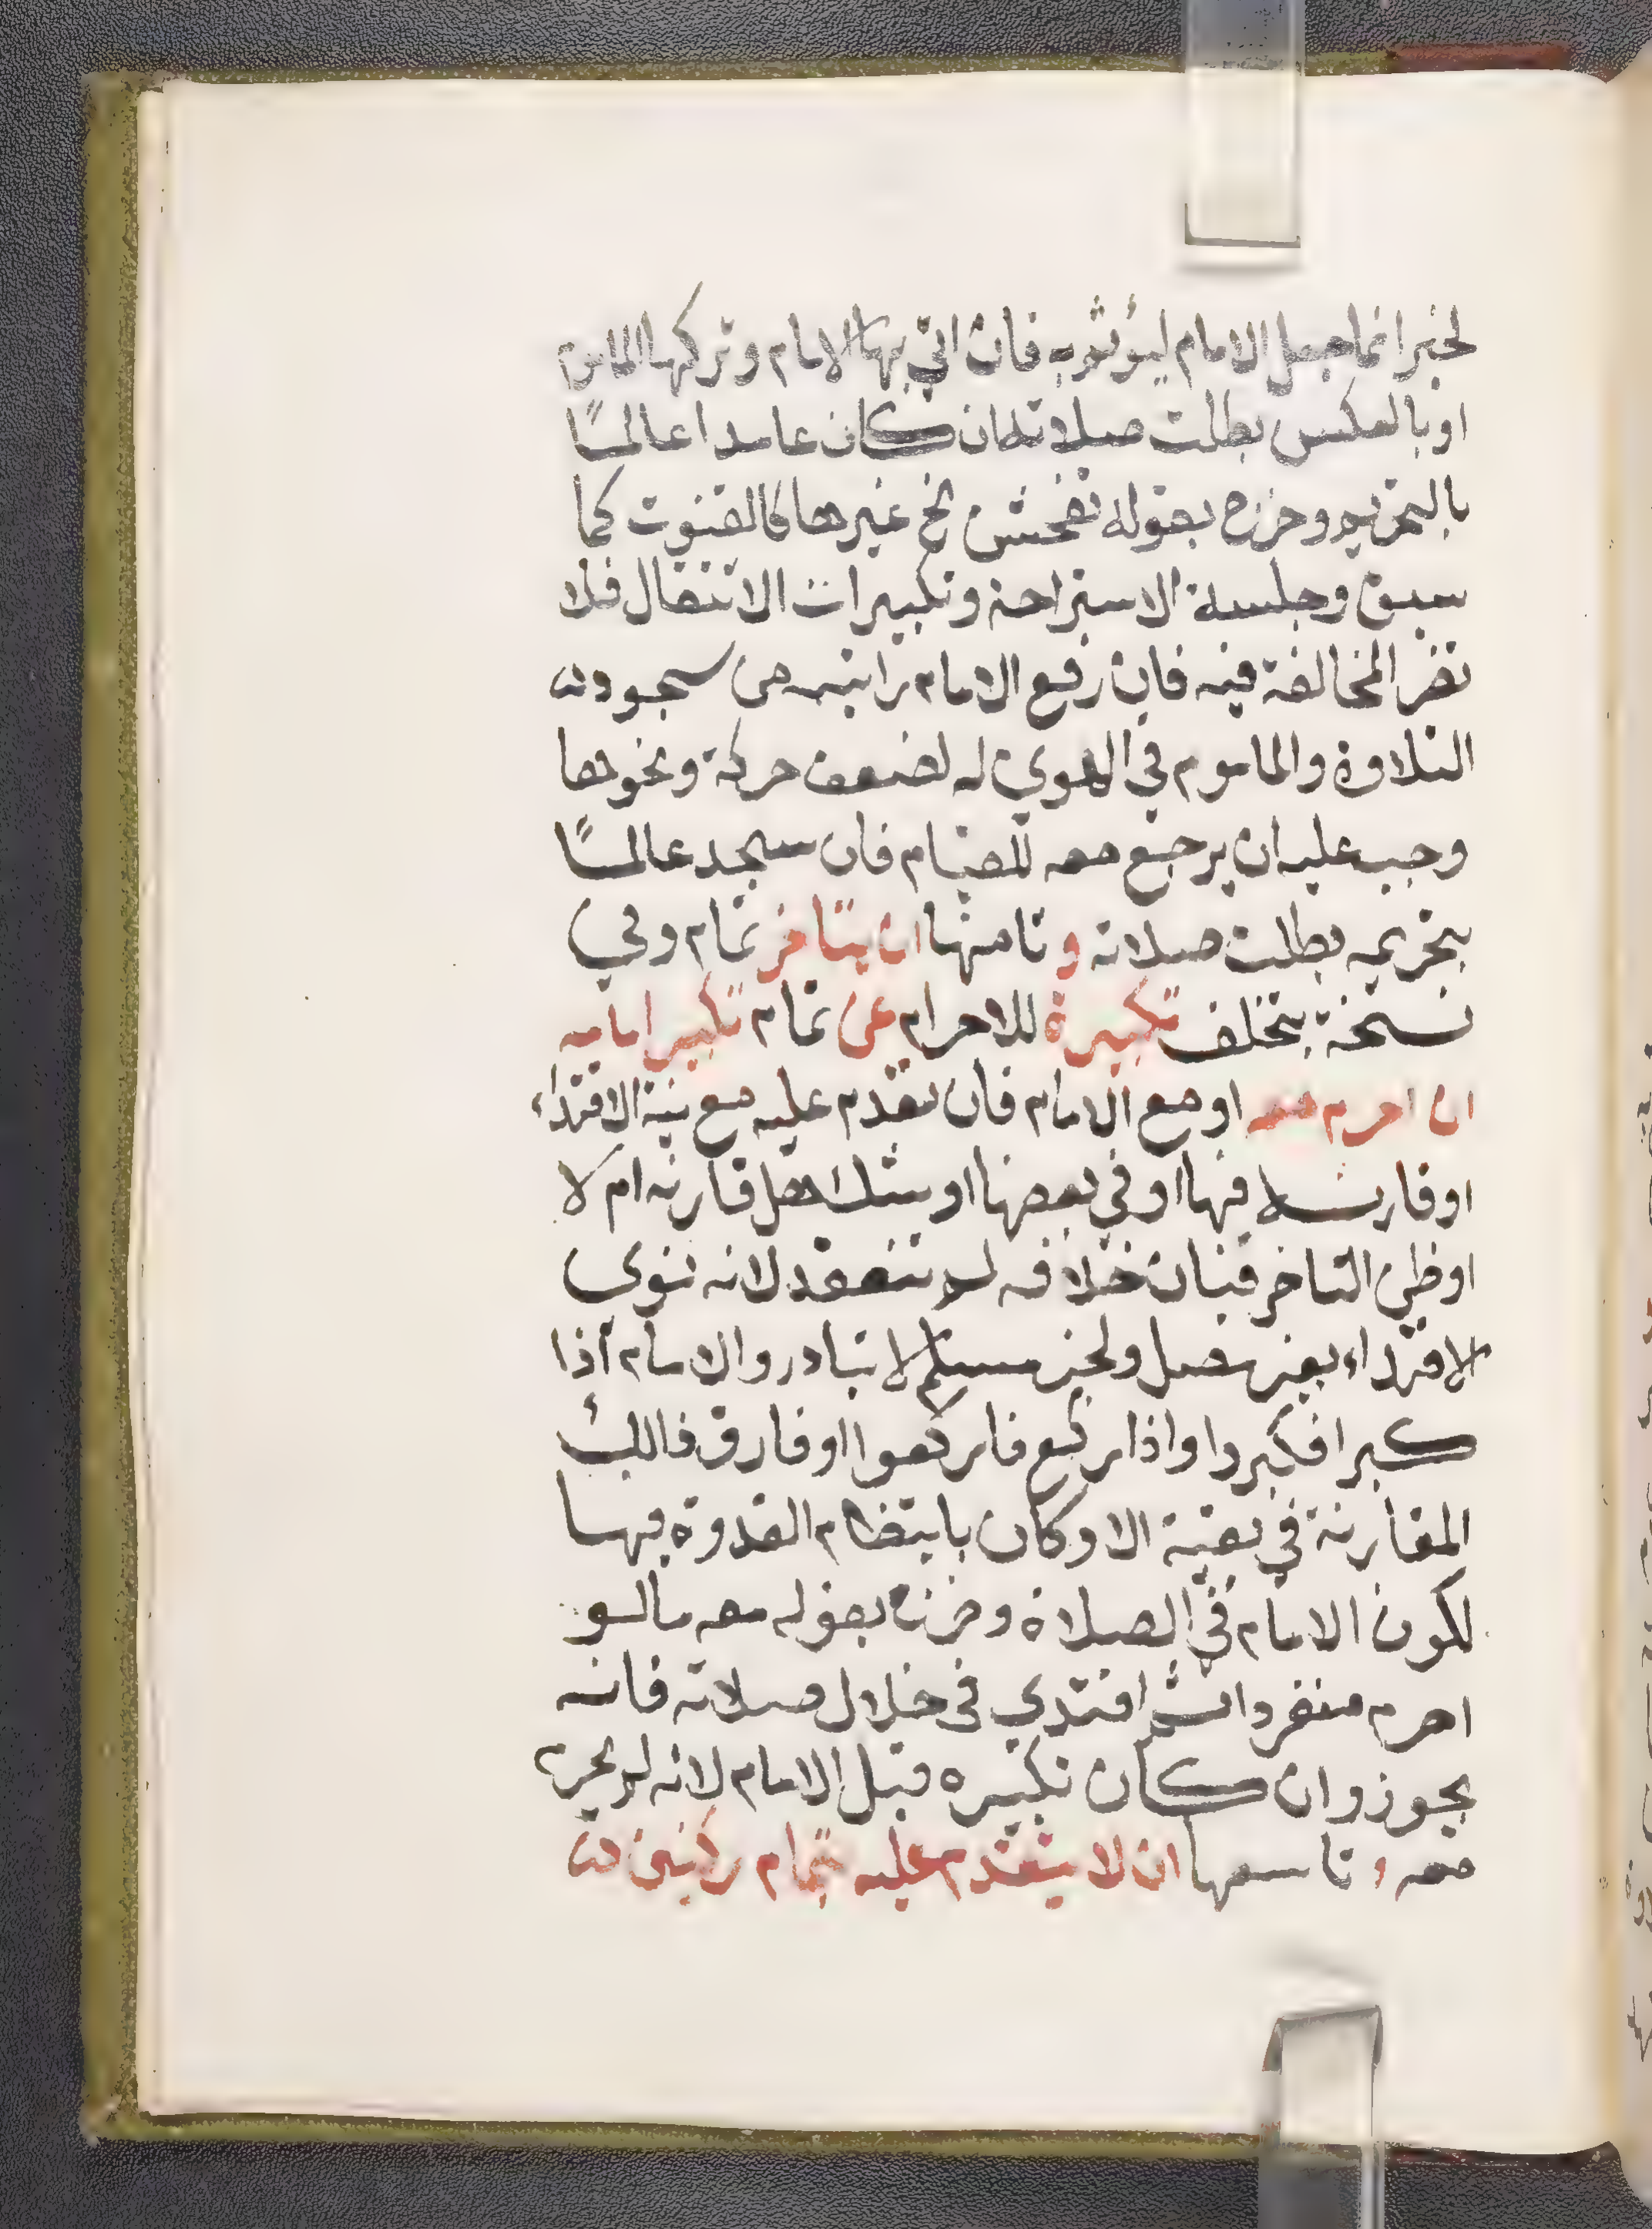 لخبر انما جعل الامام ليؤتم به فان اتي بها الامام وتركها الماموم
او بالعكس بطلت صلاته ان كان عامدا عالمًا
بالتحريم وخرج بقوله تفحش نحو غيرها كالقنوت كما
سبق وجلسة الاستراحة وتكبيرات الانتقال فلا
تضر المخالفة فيه فان رفع الامام راسه من سجود
التلاوة والماموم في الهوي له لضعف حركة ونحوها
وجب عليه ان يرجع معه للقيام فان سجد عالمًا
بتحريمه بطلت صلاته و ثامنها ان يتاخر تمام وفي
نسخة يتخلف تكبيرة للاحرام عن تمام تكبير امامه
ان احرم معه او مع الامام فان تقدم عليه مع نية الاقتداء
او قارنه فيها او في بعضها او شك هل قارنه ام لا
او ظن التاخر فبان خلافه لم تنعقد لانه نوي
الاقتداء بغير مصل ولخبر مسلم لا تبادروا الامام اذا
كبر افكبروا واذا ركع فاركعوا او فارق فالك
المقارنة في بقية الاركان بانتظام القدوة فيها
لكون الامام في الصلاة وخرج بقوله معه ما لو
احرم منفردا ثم اقتدي في خلال صلاته فانه
يجوز وان كان تكبيره قبل الامام لانه لم يحرم
معه و تاسعها ان لا يتقدم عليه بتمام ركنين من